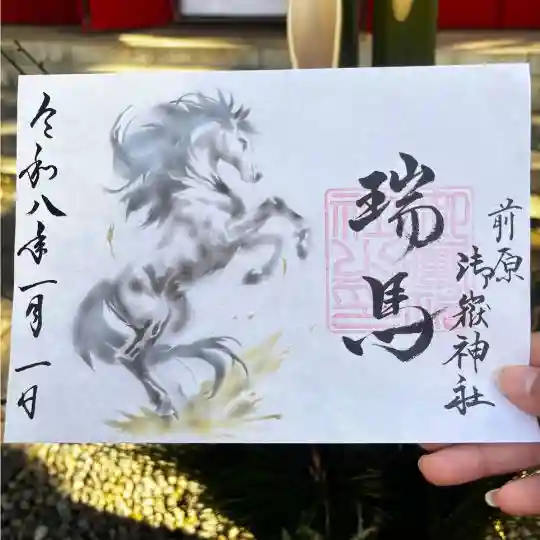 前原
御嶽神社
瑞馬
令和八年一月一日